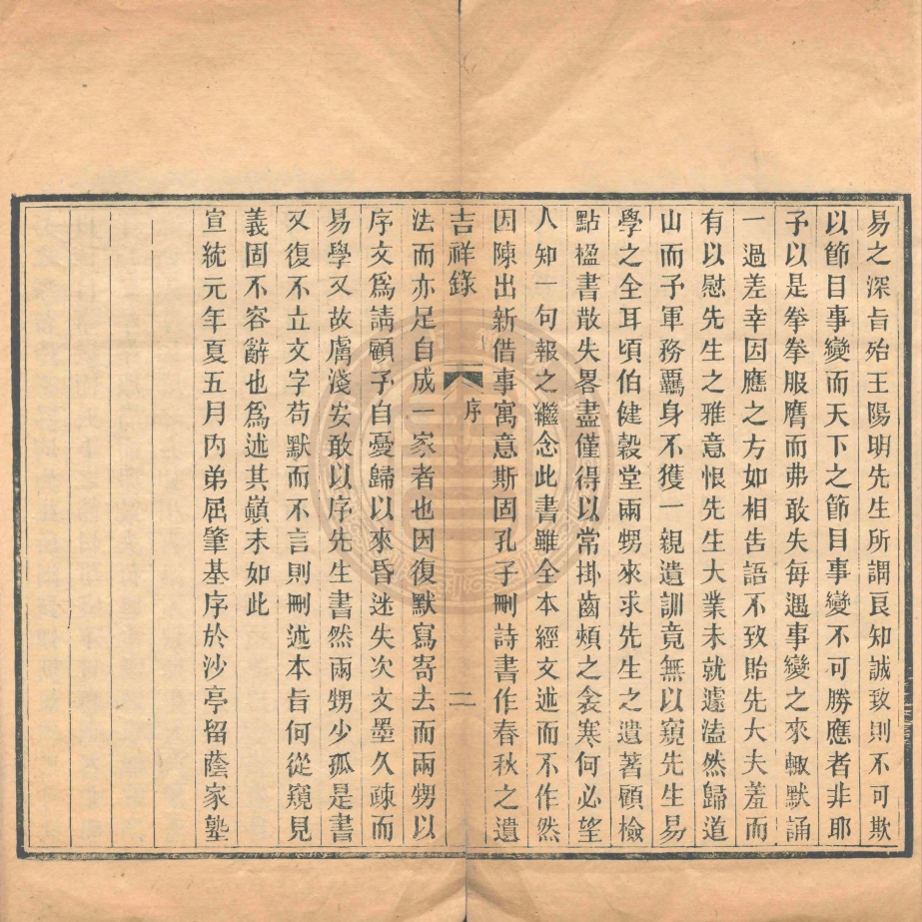 易之深旨殆王陽明先生所謂良知誠致則不可欺
以節目事變而天下之節目事變不可勝應者非耶
予以是拳拳服膺而弗敢失每遇事變之來輙默誦
一過差幸因應之方如相告語不致貽先大夫羞而
有以慰先生之雅意恨先生大業未就遽溘然歸道
山而予軍務羈身不獲一親遺訓竟無以窺先生易
學之全耳頃伯健穀堂兩甥來求先生之遺著顧檢
點楹書散失畧盡僅得以常掛齒頰之衾寒何必望
人知一句報之繼念此書雖全本經文述而不作然
因陳出新借事寓意斯固孔子刪詩書作春秋之遺
吉祥錄
序
二
法而亦足自成一家者也因復默寫寄去而兩甥以
序文爲請顧予自憂歸以來昏迷失次文墨久疎而
易學又故膚淺安敢以序先生書然兩甥少孤是書
又復不立文字苟默而不言則刪述本旨何從窺見
義固不容辭也爲述其顚末如此
宣統元年夏五月内弟屈筆基序於沙亭留蔭家塾